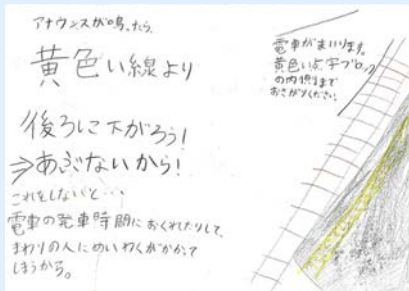 アナウンスが鳴ったら、
黄色い線より
後ろに下がろう!
⇒あぶないから!
これをしないと…
電車の発車時間におくれたりして、
まわりの人にめいわくがかかって
しまうから。
電車がまいります。
黄色い点字ブロック
の内側まで
おさがりください。